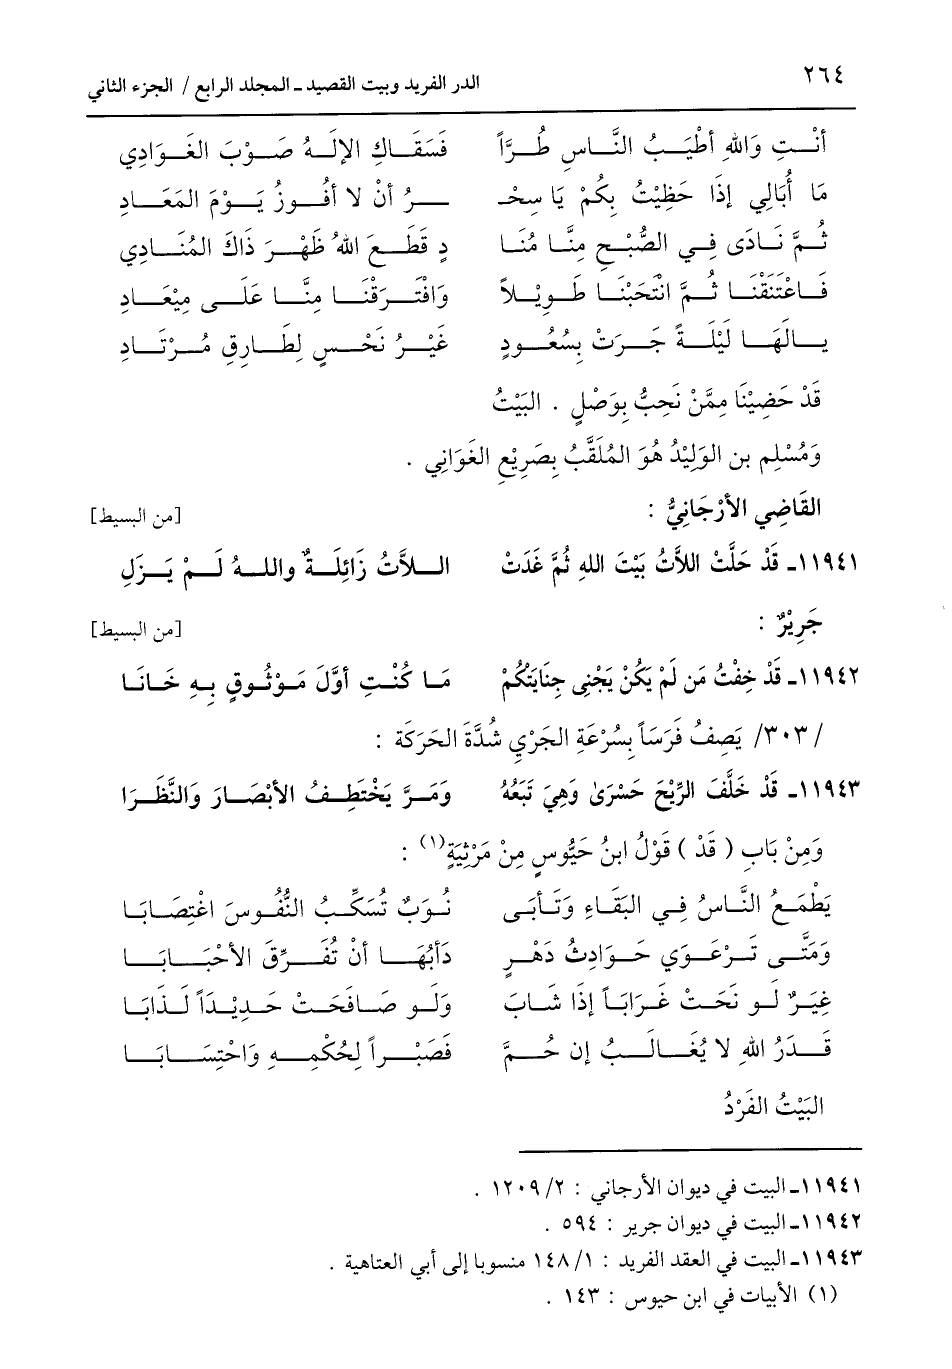 ٢٦٤
الدر الفريد وبيت القصيد ـ المجلد الرابع / الجزء الثاني
أَنْتِ وَاللهِ أَطْيَبُ النَّاسِ طُرَّاً فَسَقَاكِ الإِلَهُ صَوْبَ الغَوَادِي
مَا أُبَالِي إِذَا حَظِيْتُ بِكُمْ يَا سِحْـ ـرُ أَنْ لا أَفُوزُ يَوْمَ المَعَادِ
ثُمَّ نَادَى فِي الصُّبْحِ مِنَّا مُنَا دٍ قَطَعَ اللهُ ظَهْرَ ذَاكَ المُنَادِي
فَاعْتَنَقْنَا ثُمَّ انْتَحَبْنَا طَوِيْلاً وَافْتَرَقْنَا مِنَّا عَلَى مِيْعَادِ
يَالَهَا لَيْلَةً جَرَتْ بِسُعُودٍ غَيْرُ نَحْسٍ لِطَارِقٍ مُرْتَادِ
قَدْ حَضِيْنَا مِمَّنْ نَحِبُّ بِوَصْلٍ . البَيْتُ
وَمُسْلِم بن الوَلِيْدُ هُوَ المُلَقَّبُ بِصَرِيْعِ الغَوَانِي .
القَاضِي الأَرْجَانِيُّ : [من البسيط]
١١٩٤١ـ قَدْ حَلَّتْ اللاَّتُ بَيْتَ اللهِ ثُمَّ غَدَتْ الـلاَّتُ زَائِلَةٌ واللهُ لَمْ يَزَلِ
جَرِيْرٌ : [من البسيط]
١١٩٤٢ـ قَدْ خِفْتُ مَن لَمْ يَكُنْ يَجْنِى جِنَايَتَكُمْ مَا كُنْتِ أَوَّلَ مَوْثُوقٍ بِهِ خَانَا
/٣٠٣/ يَصِفُ فَرَسَاً بِسُرْعَةِ الجَرْيِ شُدَّةَ الحَرَكَةَ :
١١٩٤٣ـ قَدْ خَلَّفَ الرِّيْحَ حَسْرَىْ وَهِيَ تَبَعُهُ وَمَرَّ يَخْتَطِفُ الأَبْصَارَ وَالنَّظَرَا
وَمِنْ بَابِ ( قَدْ ) قَوْلُ ابنُ حَيُّوسٍ مِنْ مَرْثِيَةٍ(١) :
يَطْمَعُ النَّاسُ فِي البَقَاءِ وَتَأْبَى نُوَبٌ تُسَكِّبُ النُّفُوسَ اغْتِصَابَا
وَمَتَّى تَرْعَوَي حَوَادِثُ دَهْرٍ دَأبُهَا أَنْ تُفَرِّقَ الأَحْبَابَا
غِيَرٌ لَو نَحَتْ غَرَابَاً إِذَا شَابَ وَلَو صَافَحَتْ حَدِيْدَاً لَذَابَا
قَدَرُ اللهِ لا يُغَالَبُ إن حُمَّ فَصَبْراً لِحُكْمِهِ وَاحْتِسَابَا
البَيْتُ الفَرْدُ
١١٩٤١ـ البيت في ديوان الأرجاني : ١٢٠٩/٢ .
١١٩٤٢ـ البيت في ديوان جرير : ٥٩٤ .
١١٩٤٣ـ البيت في العقد الفريد : ١٤٨/١ منسوبا إلى أبي العتاهية .
(١) الأبيات في ابن حيوس : ١٤٣ .